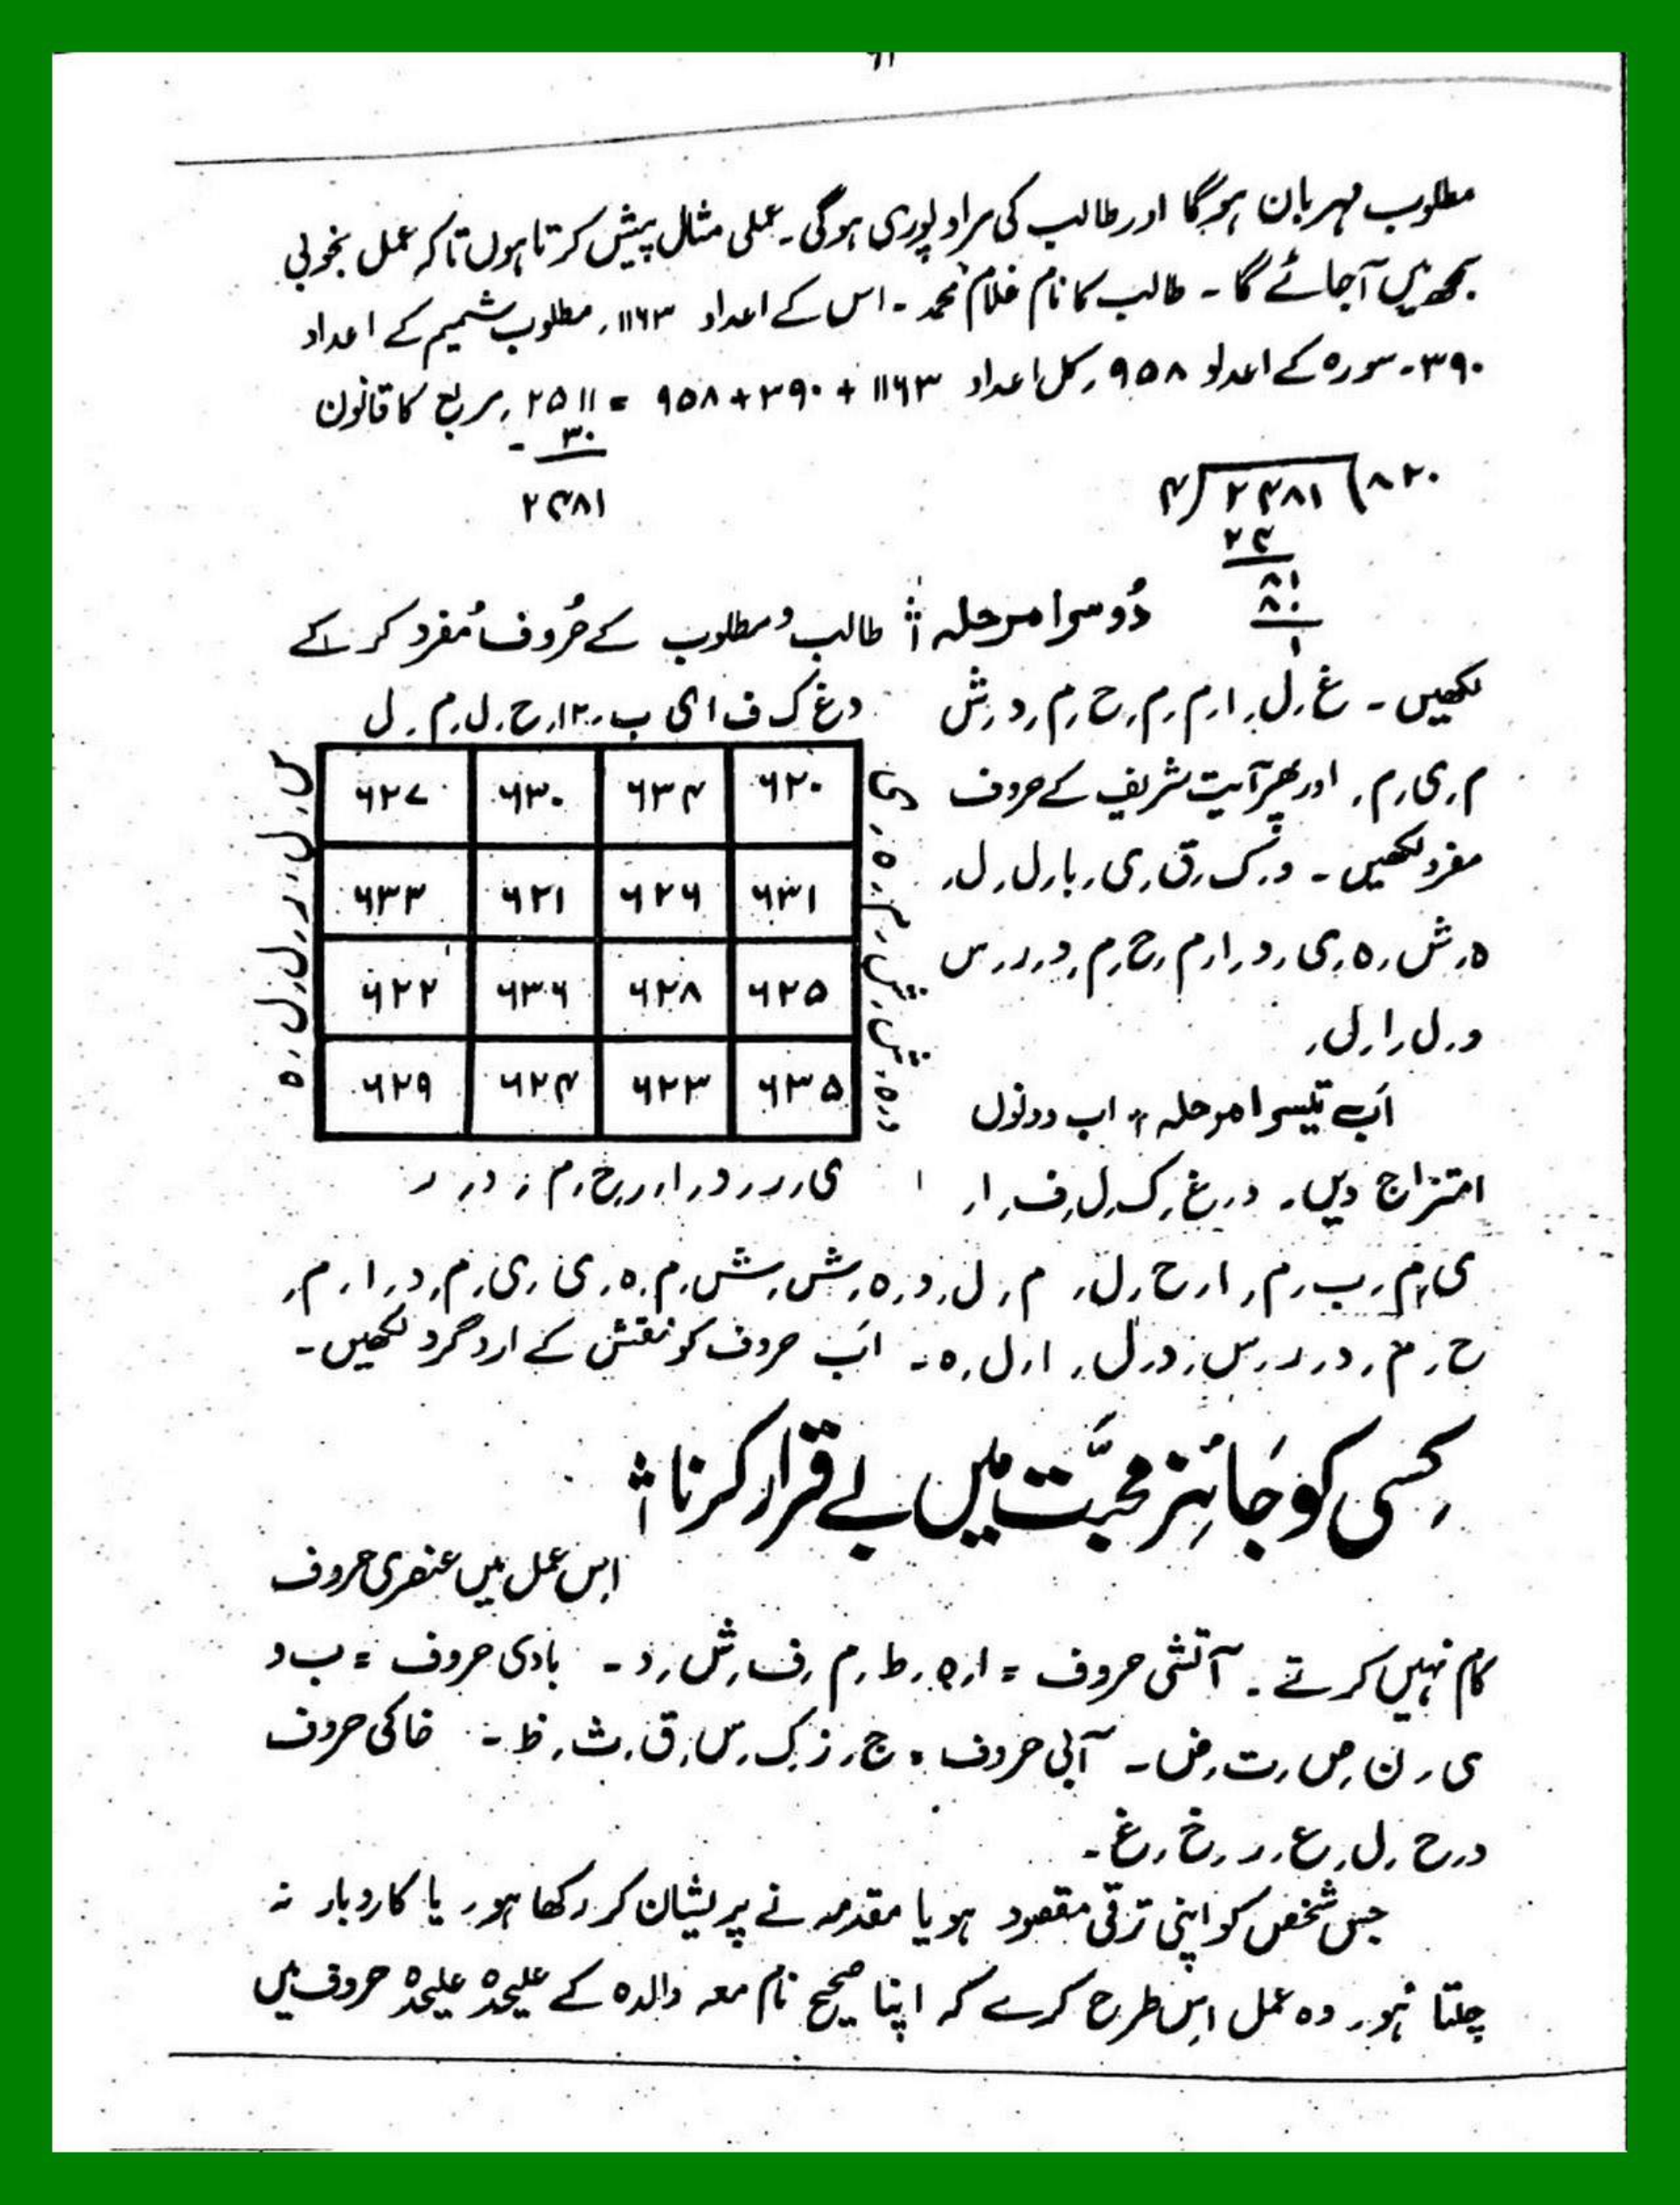 مطلوب مہربان ہوگا اور طالب کی مراد پوری ہوگی۔ عملی مثال پیش کرتا ہوں تاکہ عمل بخوبی
سمجھ میں آجائے گا۔ طالب کا نام غلام محمد۔ اس کے اعداد ۱۱۶۳، مطلوب شمیم کے اعداد
۳۹۰۔ سورہ کے اعداد ۹۵۸، کل اعداد ۱۱۶۳ + ۳۹۰ + ۹۵۸ = ۲۵۱۱، مربع کا قانون
۳۰ -
۲۴۸۱
۴ ) ۲۴۸۱ ( ۸۲۰
۲۴
۸۱
۸۰
۱
دُوسرا مرحلہ :: طالب و مطلوب کے حُروف مُفرد کر کے
لکھیں۔ غ، ل، ا، م، م، ح، م، د، ش
م، ی، م، اور پھر آیت شریف کے حروف
مفرد لکھیں۔ و، ک، ق، ی، با، ل، ل،
ہ، ش، ہ، ی، د، ا، م، ح، م، د، ر، س
و، ل، ا، ل،
اَب تیسرا مرحلہ :: اب دونوں
امتزاج دیں۔ و، غ، ک، ل، ف، ا،
دغ ک ف ا ی ب، م، ا، ح، ل، م، ل
۶۲۷ ۶۳۰ ۶۳۴ ۶۲۰
۶۳۳ ۶۲۱ ۶۲۶ ۶۳۱
۶۲۲ ۶۳۶ ۶۲۸ ۶۲۵
۶۲۹ ۶۲۴ ۶۲۳ ۶۳۵
ی، م، ب، م، ا، ح، ل، م، ل، و، ہ، ش، ش، م، ہ، ی، ی، م، د، ا، م،
ح، م، د، ر، س، و، ل، ا، ل، ہ۔ اَب حروف کو نقش کے اردگرد لکھیں۔
کِسی کو جَائِز محبَّت میں بے قرار کرنا ::
اِس عمل میں عنصری حروف
کام نہیں کرتے۔ آتشی حروف = ا، ہ، ط، م، ف، ش، ذ۔ بادی حروف = ب و
ی، ن، ص، ت، ض۔ آبی حروف = ج، ز، ک، س، ق، ث، ظ۔ خاکی حروف
د، ح، ل، ع، ر، خ، غ۔
جس شخص کو اپنی ترقی مقصود ہو یا مقدمہ نے پریشان کر رکھا ہو، یا کاروبار نہ
چلتا ہو، وہ عمل اِس طرح کرے کہ اپنا صحیح نام معہ والدہ کے علیحدہ علیحدہ حروف میں